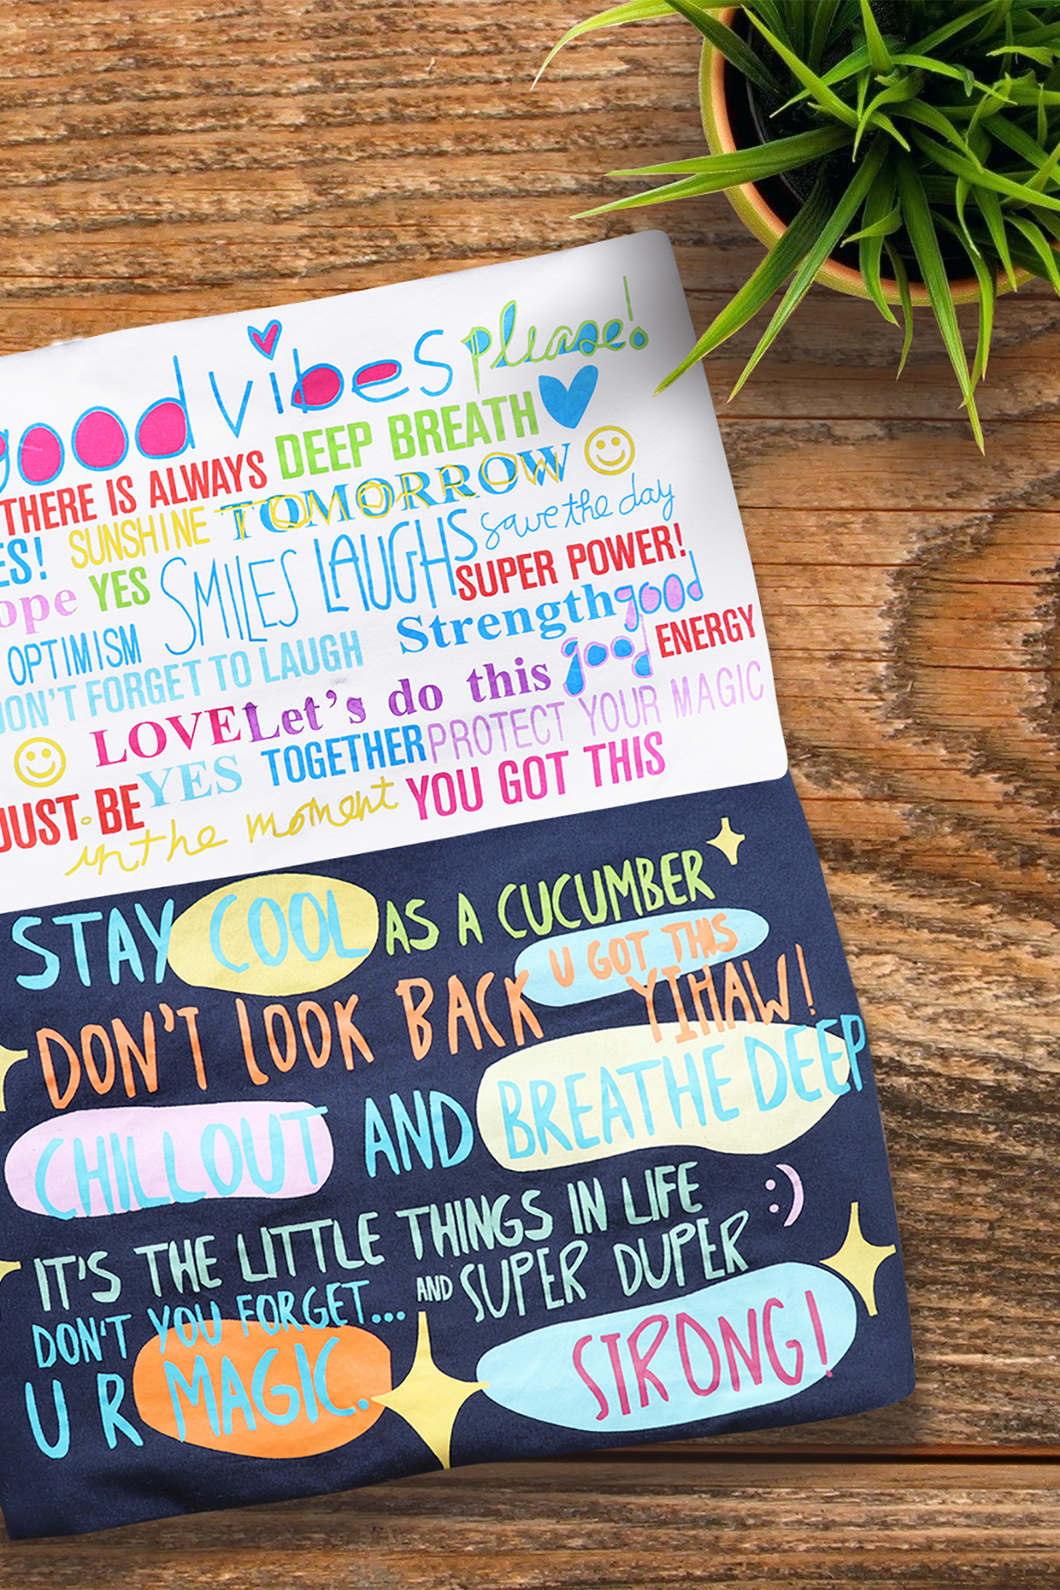 good vibes please!
THERE IS ALWAYS DEEP BREATH
SUNSHINE TOMORROW
YES SMILES LAUGHS save the day
OPTIMISM SUPER POWER!
Strength good
DON'T FORGET TO LAUGH good ENERGY
LOVE Let's do this
YES TOGETHER PROTECT YOUR MAGIC
JUST BE in the moment YOU GOT THIS
STAY COOL AS A CUCUMBER
U GOT THIS
DON'T LOOK BACK YIHAW!
CHILLOUT AND BREATHE DEEP
IT'S THE LITTLE THINGS IN LIFE :)
DON'T YOU FORGET... AND SUPER DUPER
U R MAGIC. STRONG!